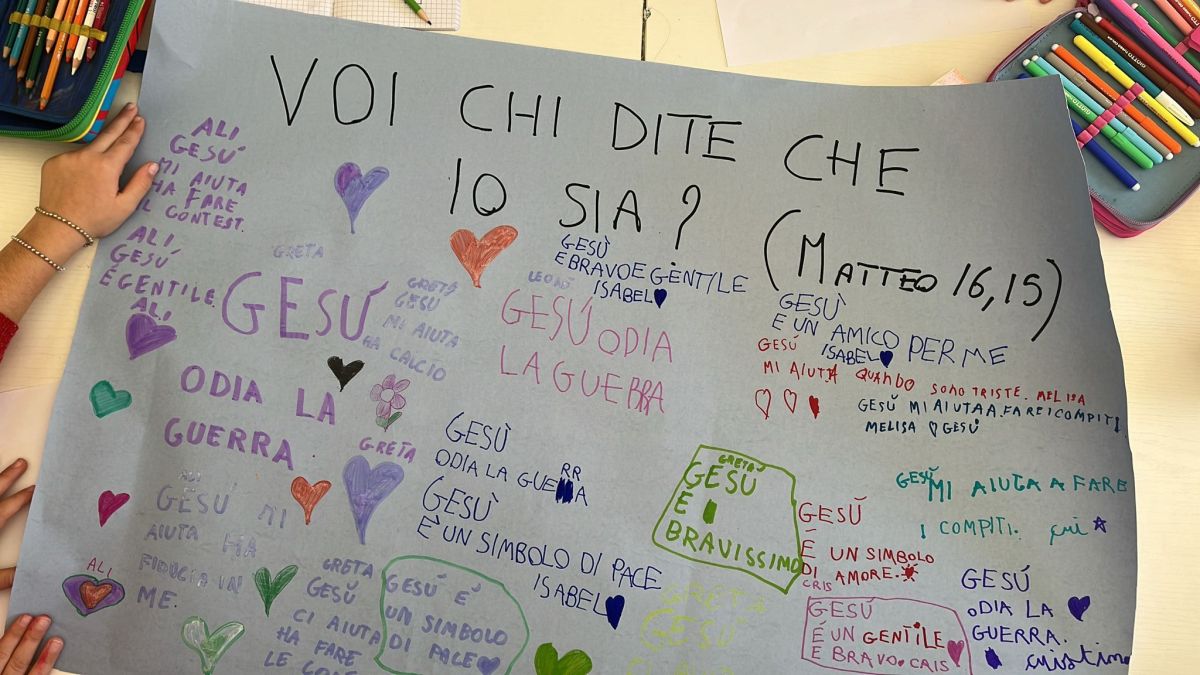 VOI CHI DITE CHE
IO SIA?
(MATTEO 16,15)
ALI
GESÚ
MI AIUTA
HA FARE
IL CONTEST.
ALI
GESÚ
É GENTILE.
ALI
GRETA
GESÚ
ODIA LA
GUERRA
GRETA
GESÚ
MI AIUTA
HA CALCIO
GRETA
GESÙ
E BRAVO E GENTILE
ISABEL
GESÚ ODIA
LA GUERRA
GESÙ
E UN AMICO PER ME
ISABEL
GESÚ
MI AIUTA QUANDO SONO TRISTE. MELISA
GESÚ MI AIUTA A FARE I COMPITI.
MELISA GESÙ
GESÙ
ODIA LA GUERRA
GESÙ
E' UN SIMBOLO DI PACE
ISABEL
GRETA
GESÚ
É
BRAVISSIMO
GESÙ MI AIUTA A FARE
I COMPITI. cri
GESÚ
É UN SIMBOLO
DI AMORE.
CRIS
GESÚ
ODIA LA
GUERRA.
cristina
GESÚ
É UN GENTILE
E BRAVO. CAIS
ALI
GESÚ MI
AIUTA HA
FIDUCIA IN
ME.
ALI
GRETA
GESÚ
CI AIUTA
HA FARE
LE
GESÚ E'
UN SIMBOLO
DI PACE
GRETA
GESÚ